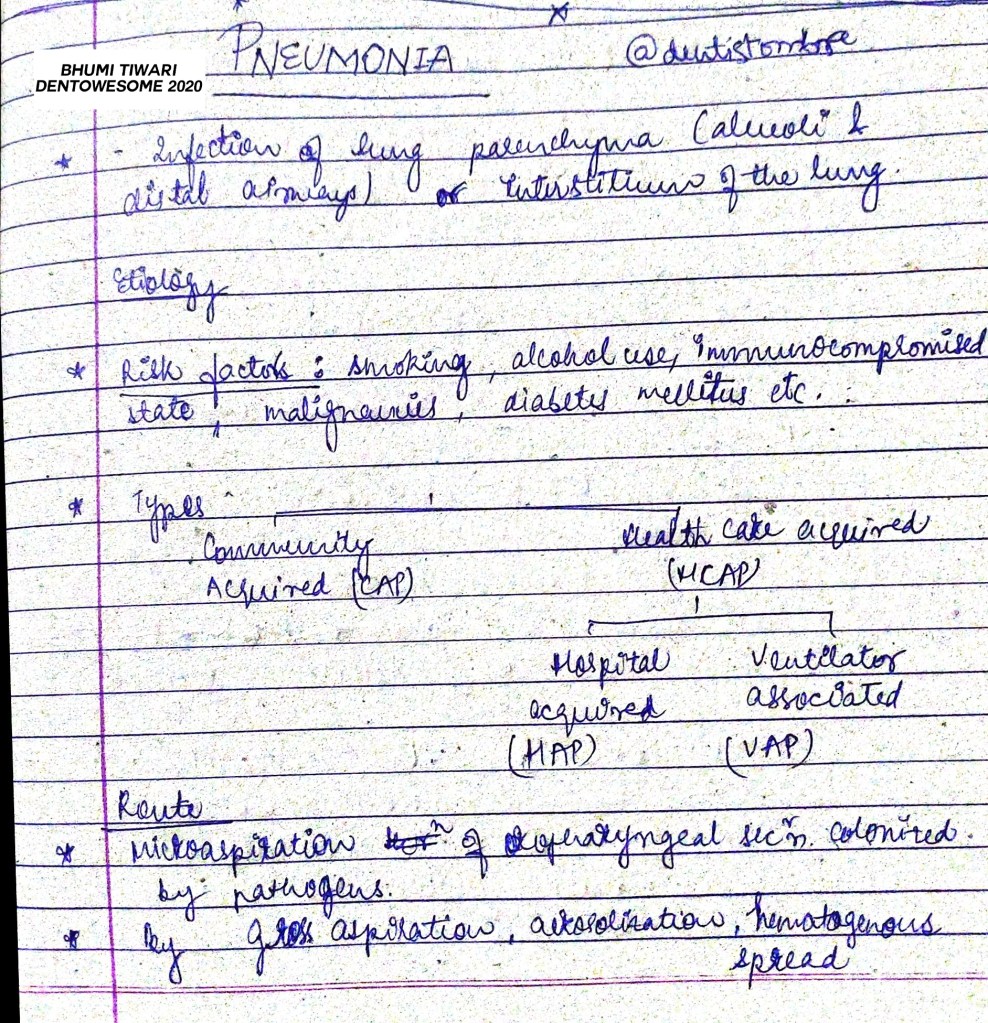 PNEUMONIA
BHUMI TIWARI
DENTOWESOME 2020
- Infection of lung parenchyma (alveoli &
distal airways) or interstitium of the lung.
Etiology
* Risk factors : smoking, alcohol use, immunocompromised
state, malignancies, diabetes mellitus etc.
* Types
Community
Acquired (CAP)
Health care acquired
(HCAP)
Hospital
acquired
(HAP)
Ventilator
associated
(VAP)
Route
* Microaspiration of oropharyngeal secn. colonized
by pathogens.
* By gross aspiration, aerosolization, hematogenous
spread